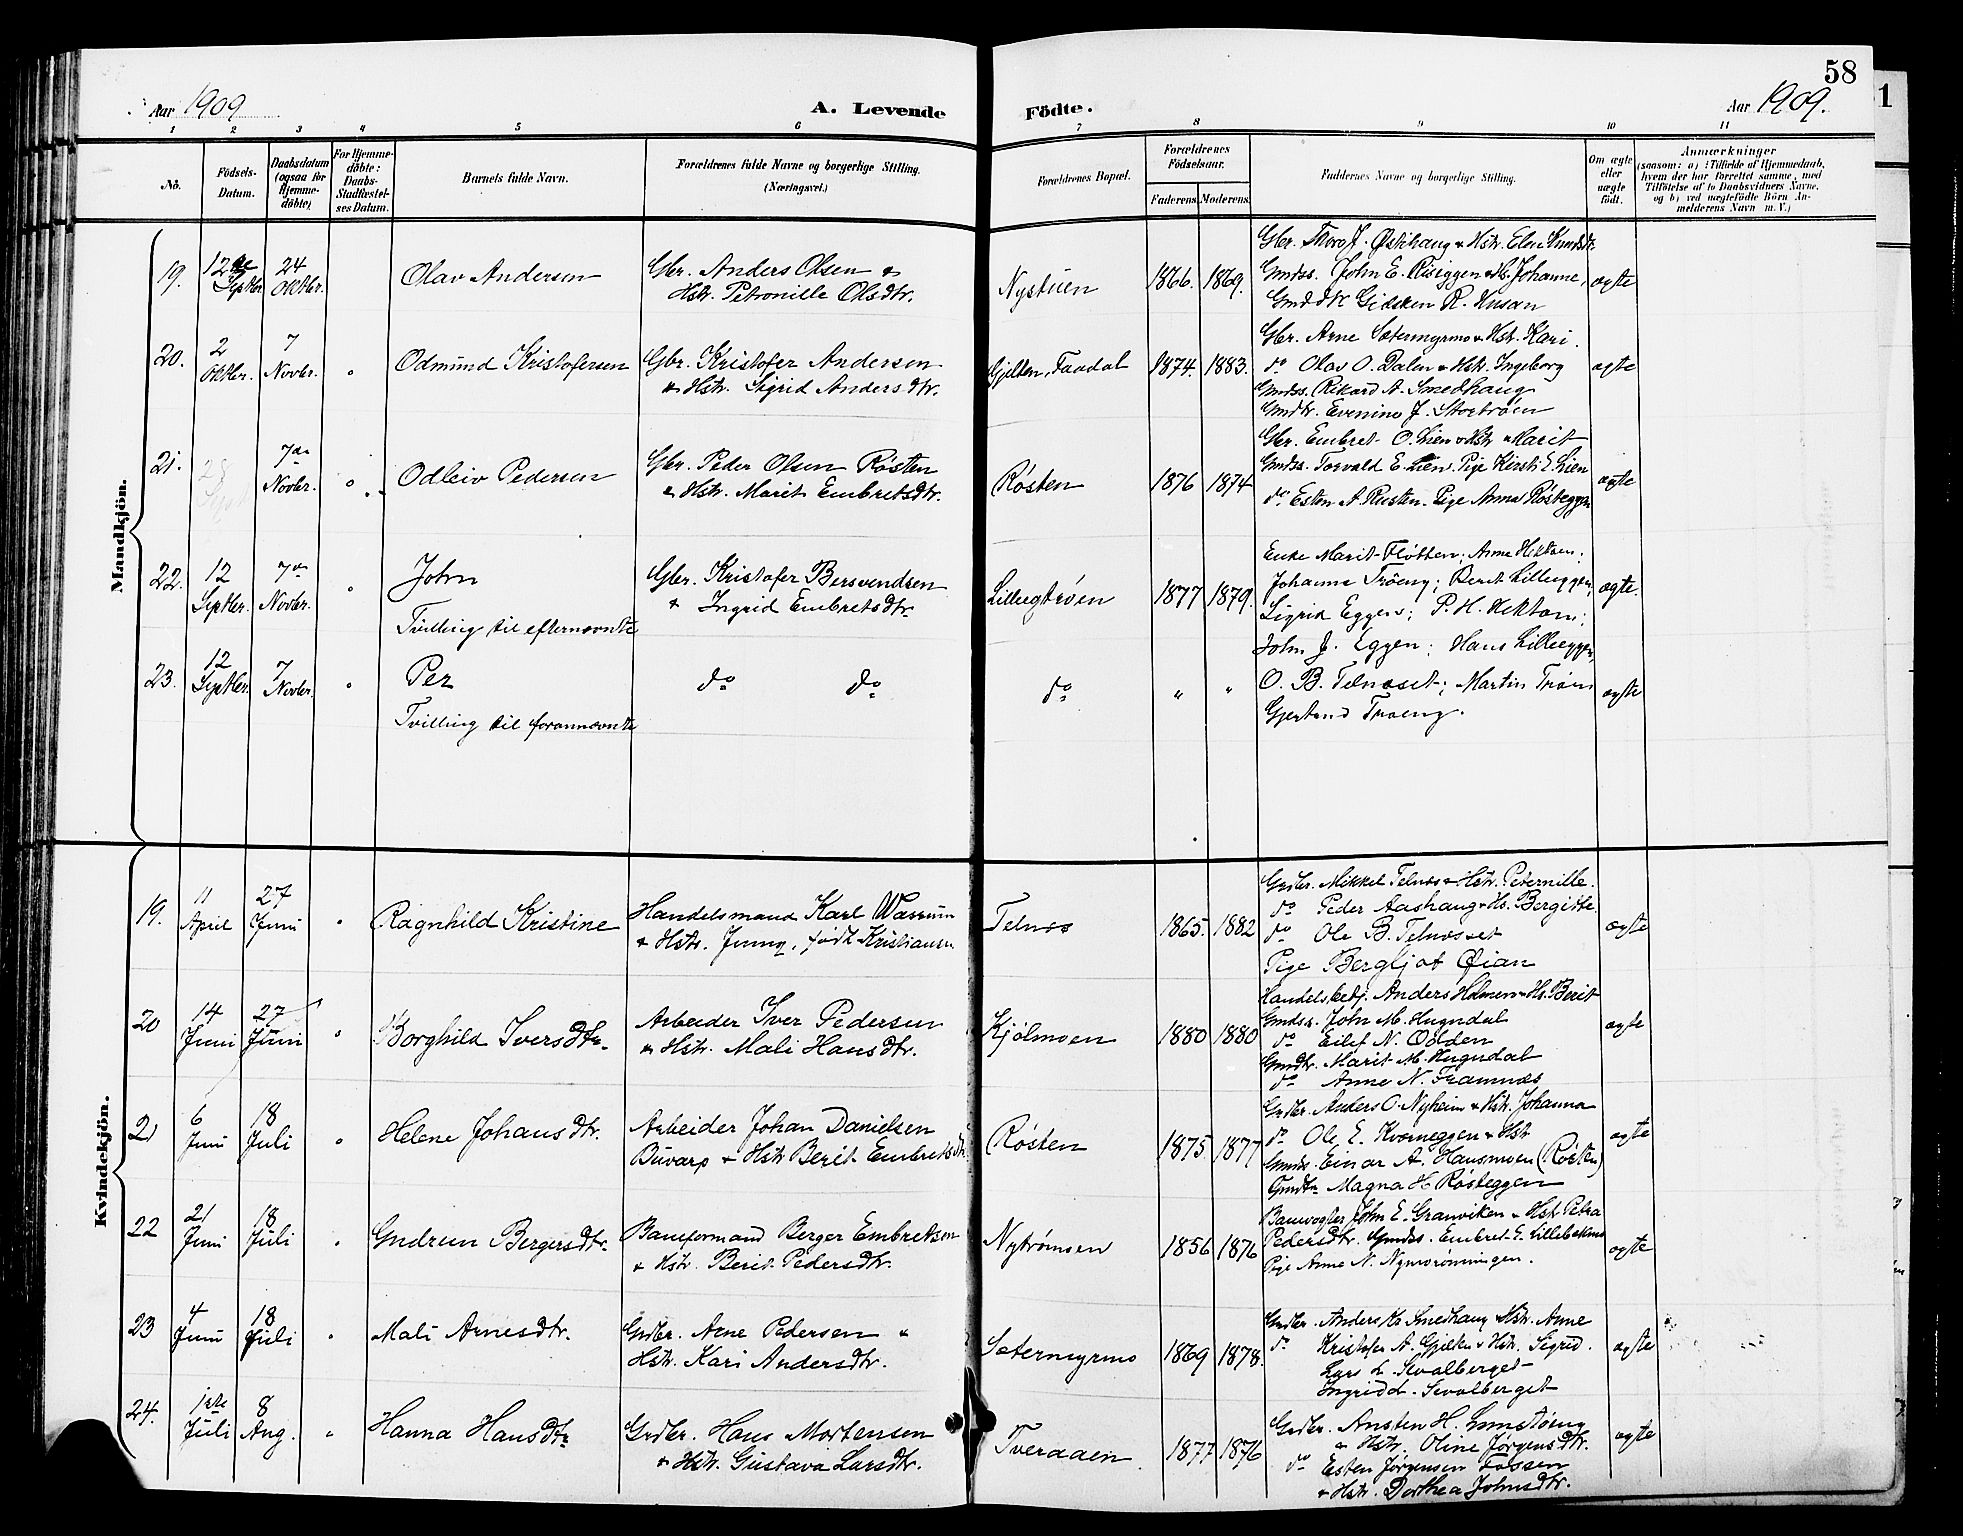 58
1
Aar 1909
A. Levende Födte.
Aar 1909.
1 2 3 4 5 6 7 8 9 10 11
No.
Födsels-
Datum.
Daabsdatum
(ogsaa for
Hjemme-
döbte)
For Hjemme-
döbte:
Daabs-
Stadfæstel-
ses Datum.
Barnets fulde Navn.
Forældrenes fulde Navne og borgerlige Stilling.
(Næringsvei.)
Forældrenes Bopæl.
Forældrenes
Födselsaar.
Faderens
Moderens
Faddernes Navne og borgerlige Stilling.
Om ægte
eller
uægte
födt.
Anmærkninger
(saasom: a) i Tilfælde af Hjemmedaab,
hvem der har forrettet samme, med
Tilföielse af to Daabsvidners Navne,
og b) ved uægtefödte Börn An-
melderens Navn m. V.)
Mandkjön.
19. 12te Septbr. 24 Oktbr.
Olav Andersen
Gbr. Anders Olsen &
Hstr. Petronille Olsdtr.
Nystuen 1866. 1869.
Gbr. Thoro J. Østihaug & Hstr. Elen Knudsdtr.
Gmdss. John E. Røseggen & Hs. Johanne,
Gmddtr Gidsken R. Husan
ægte
20. 2 Oktbr. 7 Novbr. "
Odmund Kristofersen
Gbr. Kristofer Andersen
& Hstr. Sigrid Andersdtr.
Gjelten, Faadal 1874. 1883.
Gbr. Arne Sætermyrmo & Hstr. Kari.
do Olav O. Dalen & Hstr. Ingeborg
Gmdss. Rikard A. Smedhaug
Gmdtr. Evenine J. Storbrøen
ægte
21. 28 Sept 7de Novbr. "
Odleiv Pedersen
Gbr. Peder Olsen Røsten
& Hstr. Marit Embretsdtr.
Røsten 1876 1874
Gbr. Embret O. Lien & Hstr Marit
Gmdss. Torvald E. Lien. Pige Kirsti E. Lien
do Esten A. Rusten. Pige Anna Røsteggen
ægte
22. 12 Septbr. 7de Novbr. "
John
Tvilling til efternævnte
Gbr. Kristofer Bersvendsen
& Ingrid Embretsdtr.
Lilleegtrøen 1877 1879.
Enke Marit Fløtten; Anne Hektoen;
Johanna Trøeng; Berit Lilleeggen;
Sigrid Eggen; P. H. Hektoen;
John J. Eggen; Hans Lilleeggen,
ægte.
23. 12 Septbr. 7 Novbr. "
Per
Tvilling til forannævnte
do do do " "
O. B. Telneset; Martin Trøen
Gjertrud Trøeng.
ægte
Kvindekjön.
19. 11 April 27 Juni "
Ragnhild Kristine
Handelsmand Karl Wassum
& Hstr. Jenny, født Kristiansen
Telnes 1865. 1882
Grdbr. Mikkel Telnes & Hstr. Peternille.
do Peder Aashaug & Hs. Bergitte.
do Ole B. Telnesset
Pige Bergljot Øian
ægte
20 14 Juni 27 Juni "
Borghild Iversdtr.
Arbeider Iver Pedersen
& Hstr. Mali Hansdtr.
Kjølmoen 1880 1880
Handelsbetj. Anders Holmen & Hs. Berit
Gmdss. John M. Hugndal
do Eilif N. Odden
Gmdtr. Marit M. Hugndal
do Anne N. Framnæs
ægte
21 6 Juni 18 Juli "
Helene Johansdtr.
Arbeider Johan Danielsen
Buvarp & Hstr Berit Embretsdtr.
Røsten 1875. 1877
Grdbr. Anders O. Nyheim & Hstr. Johanna
do Ole E. Kvæneggen & Hstr
Gmds. Einar A. Hansmoen (Røsten)
Gmdtr. Magna H Røsteggen
ægte
22 21 Juni 18 Juli "
Gudrun Bergersdtr.
Baneformand Berger Embretsen
& Hstr. Berit Pedersdtr.
Nytrømoen 1856 1876
Banevogter John E. Granviken & Hstr Petra
Pedersdtr. Gmdss. Embret E. Lillebakmo
Pige Anne N.
ægte
23 4 Juni 18 Juli "
Mali Arnesdtr.
Grdbr. Arne Pedersen &
Hstr. Kari Andersdtr.
Sætermyrmo 1869 1878.
Grdbr. Anders K. Smedhaug & Hstr. Anne
do Kristofer A. Gjelten & Hstr. Sigrid.
Lars L. Sevalberget
Ingrid L. Sevalberget
ægte
24. 1ste Juli 8 Aug. "
Hanna Hansdtr.
Grdbr. Hans Mortensen
& Hstr. Gustava Larsdtr.
Tveraaen 1877 1876
Grdbr. Ansten H.
& Hstr. Oline Jørgensdtr.
do Esten Jørgensen Fossen
& Hstr. Dorthea Johnsdtr.
ægte